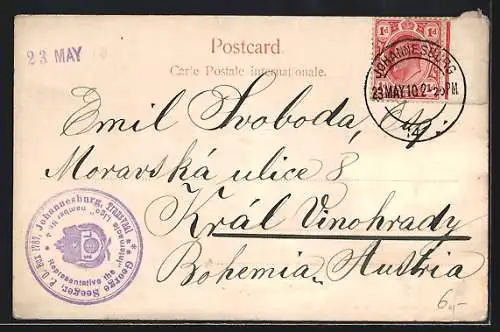 23 MAY 10
Postcard.
Carte Postale internationale.
1d 1d
JOHANNESBURG
23 MAY 10 2 PM
14
Emil Svoboda,
Moravská ulice 8
Král Vinohrady
Bohemia, Austria
George Seeger, P. O. Box 1787, Johannesburg, Transvaal
Representative the
member No.
6,-